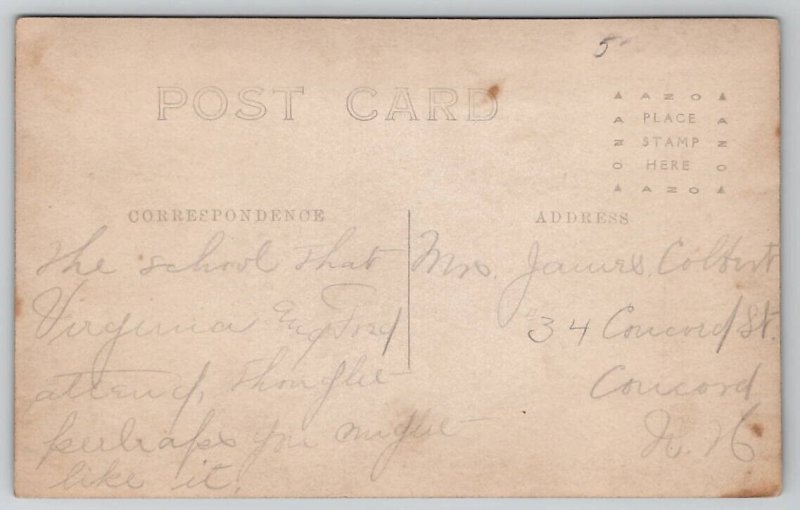 5
POST CARD
AZO
PLACE
STAMP
HERE
AZO
AZO
AZO
CORRESPONDENCE
ADDRESS
The school that
Virginia
attend, thought
perhaps you might
like it.
Mrs. James Colbert
34 Concord St.
Concord
N. H